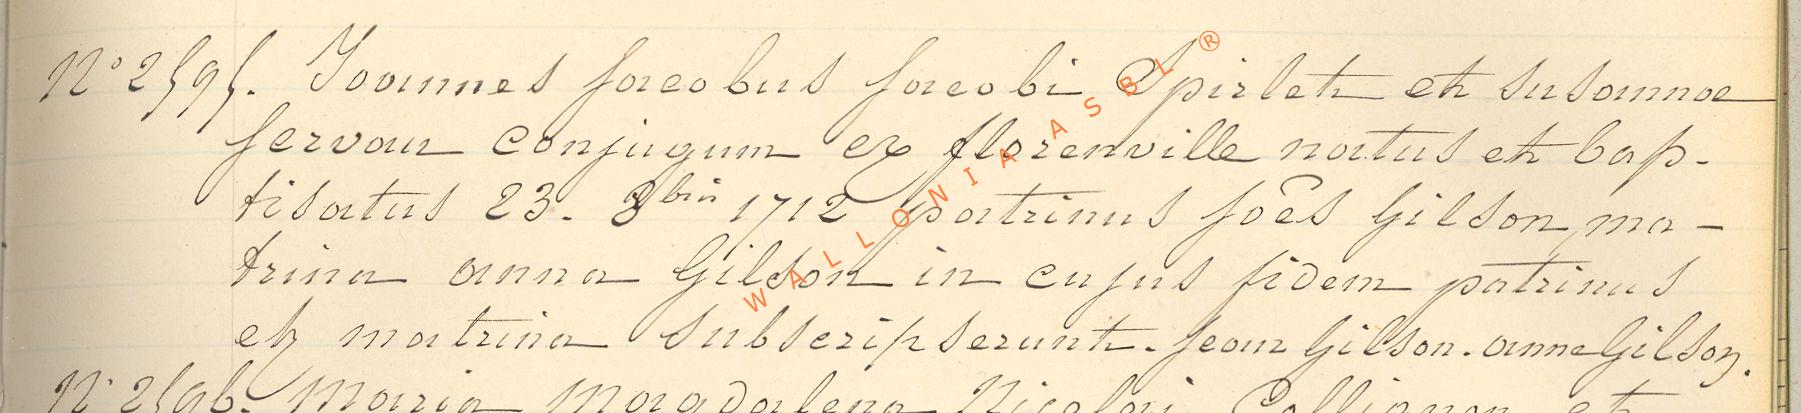 N° 2595. Joannes Jacobus Jacobi Spirlet et Susannae
Servais conjugum ex florenville natus et bap-
tisatus 23. 8bris 1712 patrinus Joês Gilson, ma-
trina anna Gilson in cujus fidem patrinus
et matrina subscripserunt. Jean Gilson. anne Gilson.
N° 2596. Maria Magdalena Nicolai Collignon et
WALLONIA ASBL ®